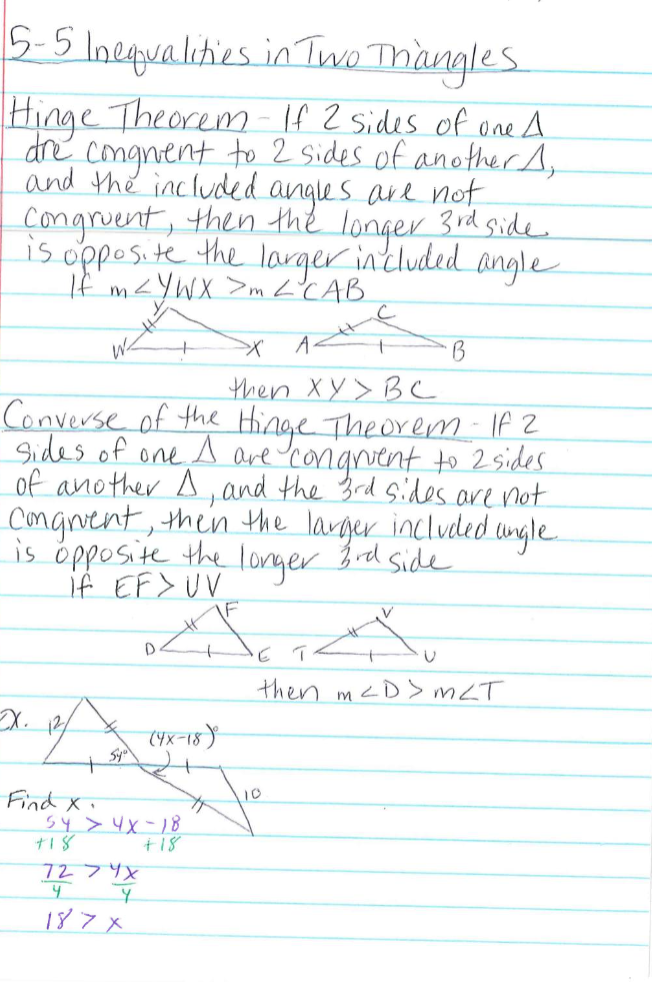 5-5 Inequalities in Two Triangles
Hinge Theorem - If 2 sides of one Δ
are congruent to 2 sides of another Δ,
and the included angles are not
congruent, then the longer 3rd side
is opposite the larger included angle
If m∠YWX > m∠CAB
Y C
W X A B
then XY > BC
Converse of the Hinge Theorem - If 2
sides of one Δ are congruent to 2 sides
of another Δ, and the 3rd sides are not
congruent, then the larger included angle
is opposite the longer 3rd side
If EF > UV
F V
D E T U
then m∠D > m∠T
Ex. 12 (4x-18)°
54°
10
Find x.
54 > 4x - 18
+18 +18
72 > 4x
4 4
18 > x